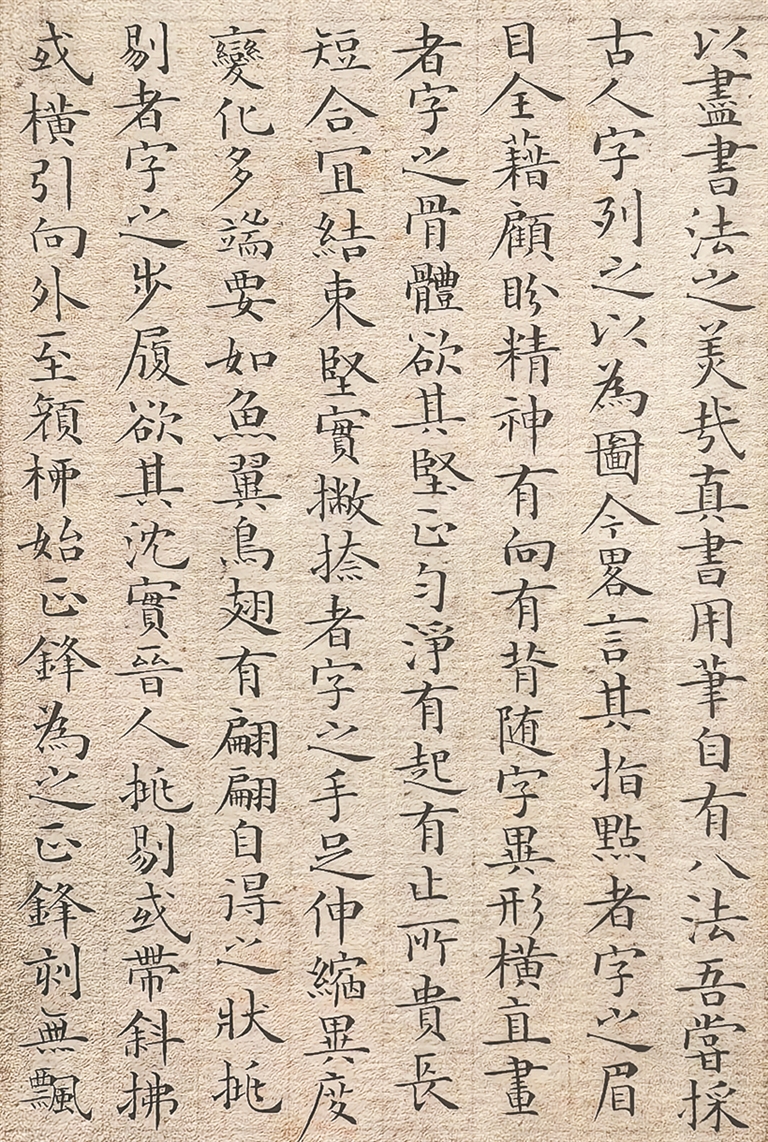 以盡書法之美哉真書用筆自有八法吾嘗採
古人字列之以為圖今畧言其指點者字之眉
目全藉顧盼精神有向有背随字異形橫直畫
者字之骨體欲其堅正勻淨有起有止所貴長
短合冝結束堅實撇捺者字之手足伸縮異度
變化多端要如魚翼鳥翅有翩翩自得之狀挑
剔者字之步履欲其沈實晉人挑剔或帶斜拂
或橫引向外至顔栁始正鋒為之正鋒則無飄